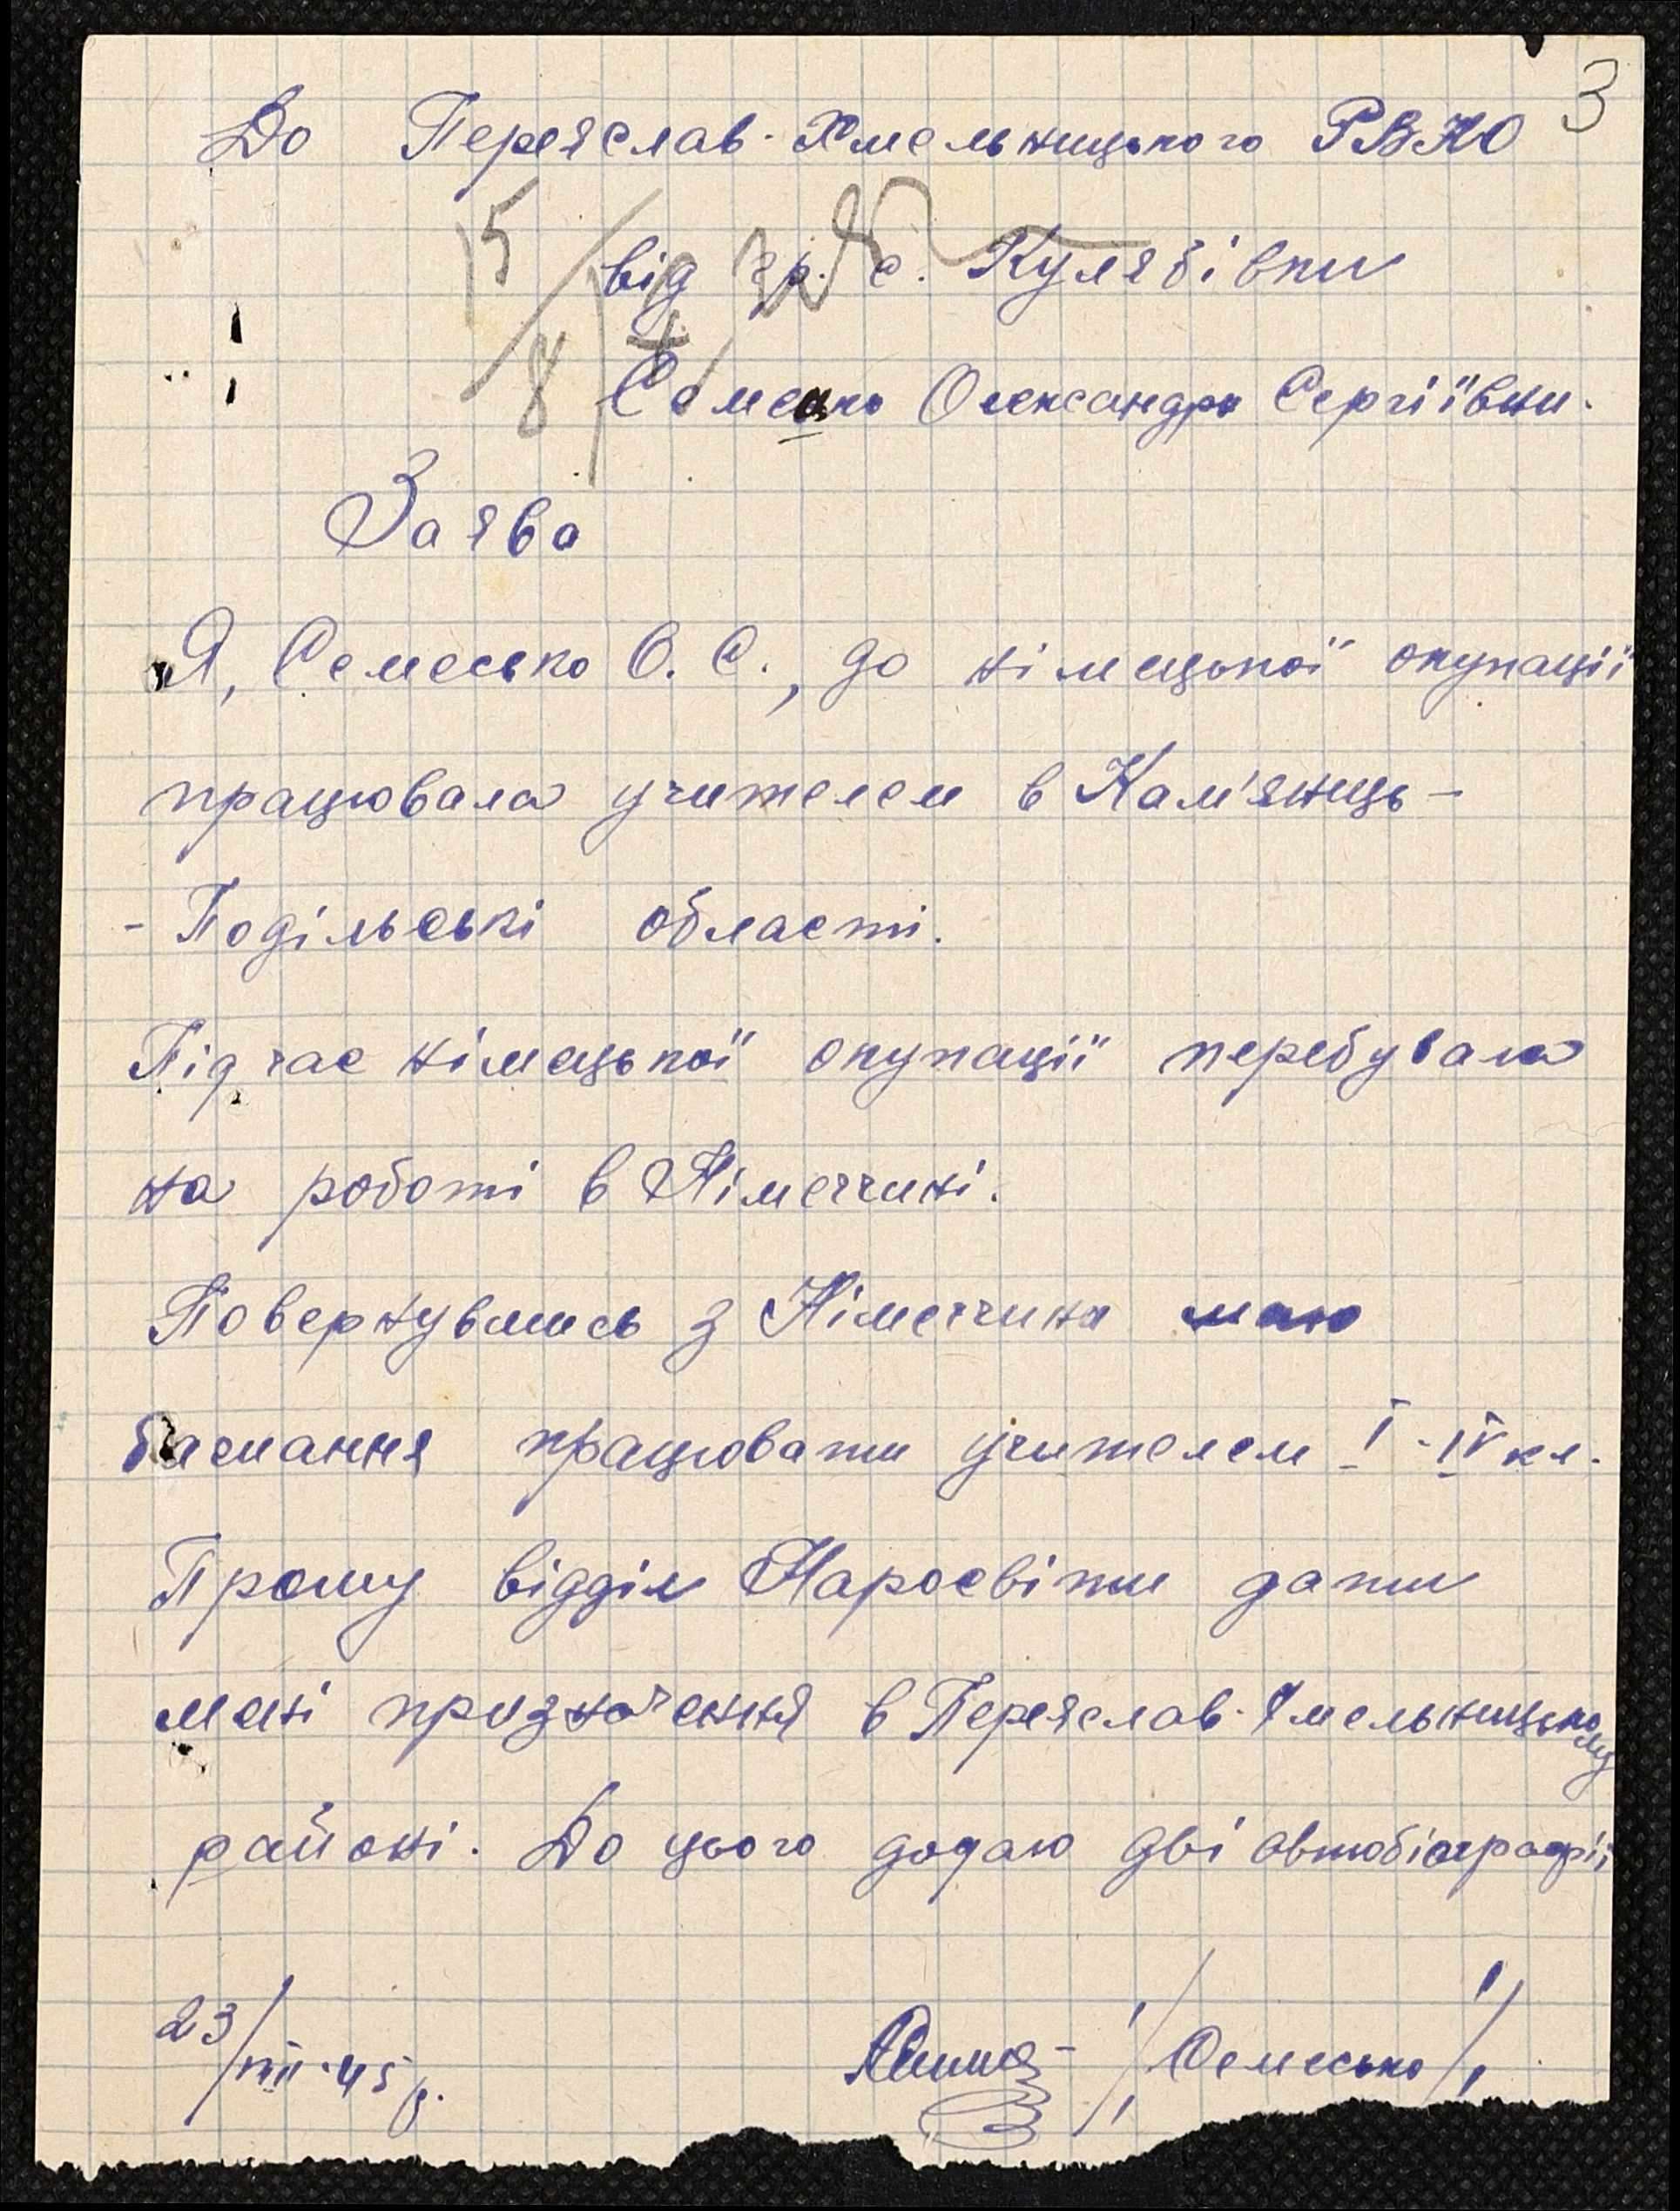 До Переяслав-Хмельницького РВНО 3
від гр. с. Кулябівки
Олександри Сергіївни.
Заява
Я, Семесько О. С., до німецької окупації
працювала учителем в Кам'янець-
-Подільські області.
Під час німецької окупації перебувала
на роботі в Німеччині.
Повернувшись з Німеччини маю
бажання працювати учителем І-ІV кл.
Прошу відділ Наросвіти дати
мені призначення в Переяслав-Хмельницькому
районі. До цього додаю дві автобіографії
23/VIII-45 р. /Семесько/